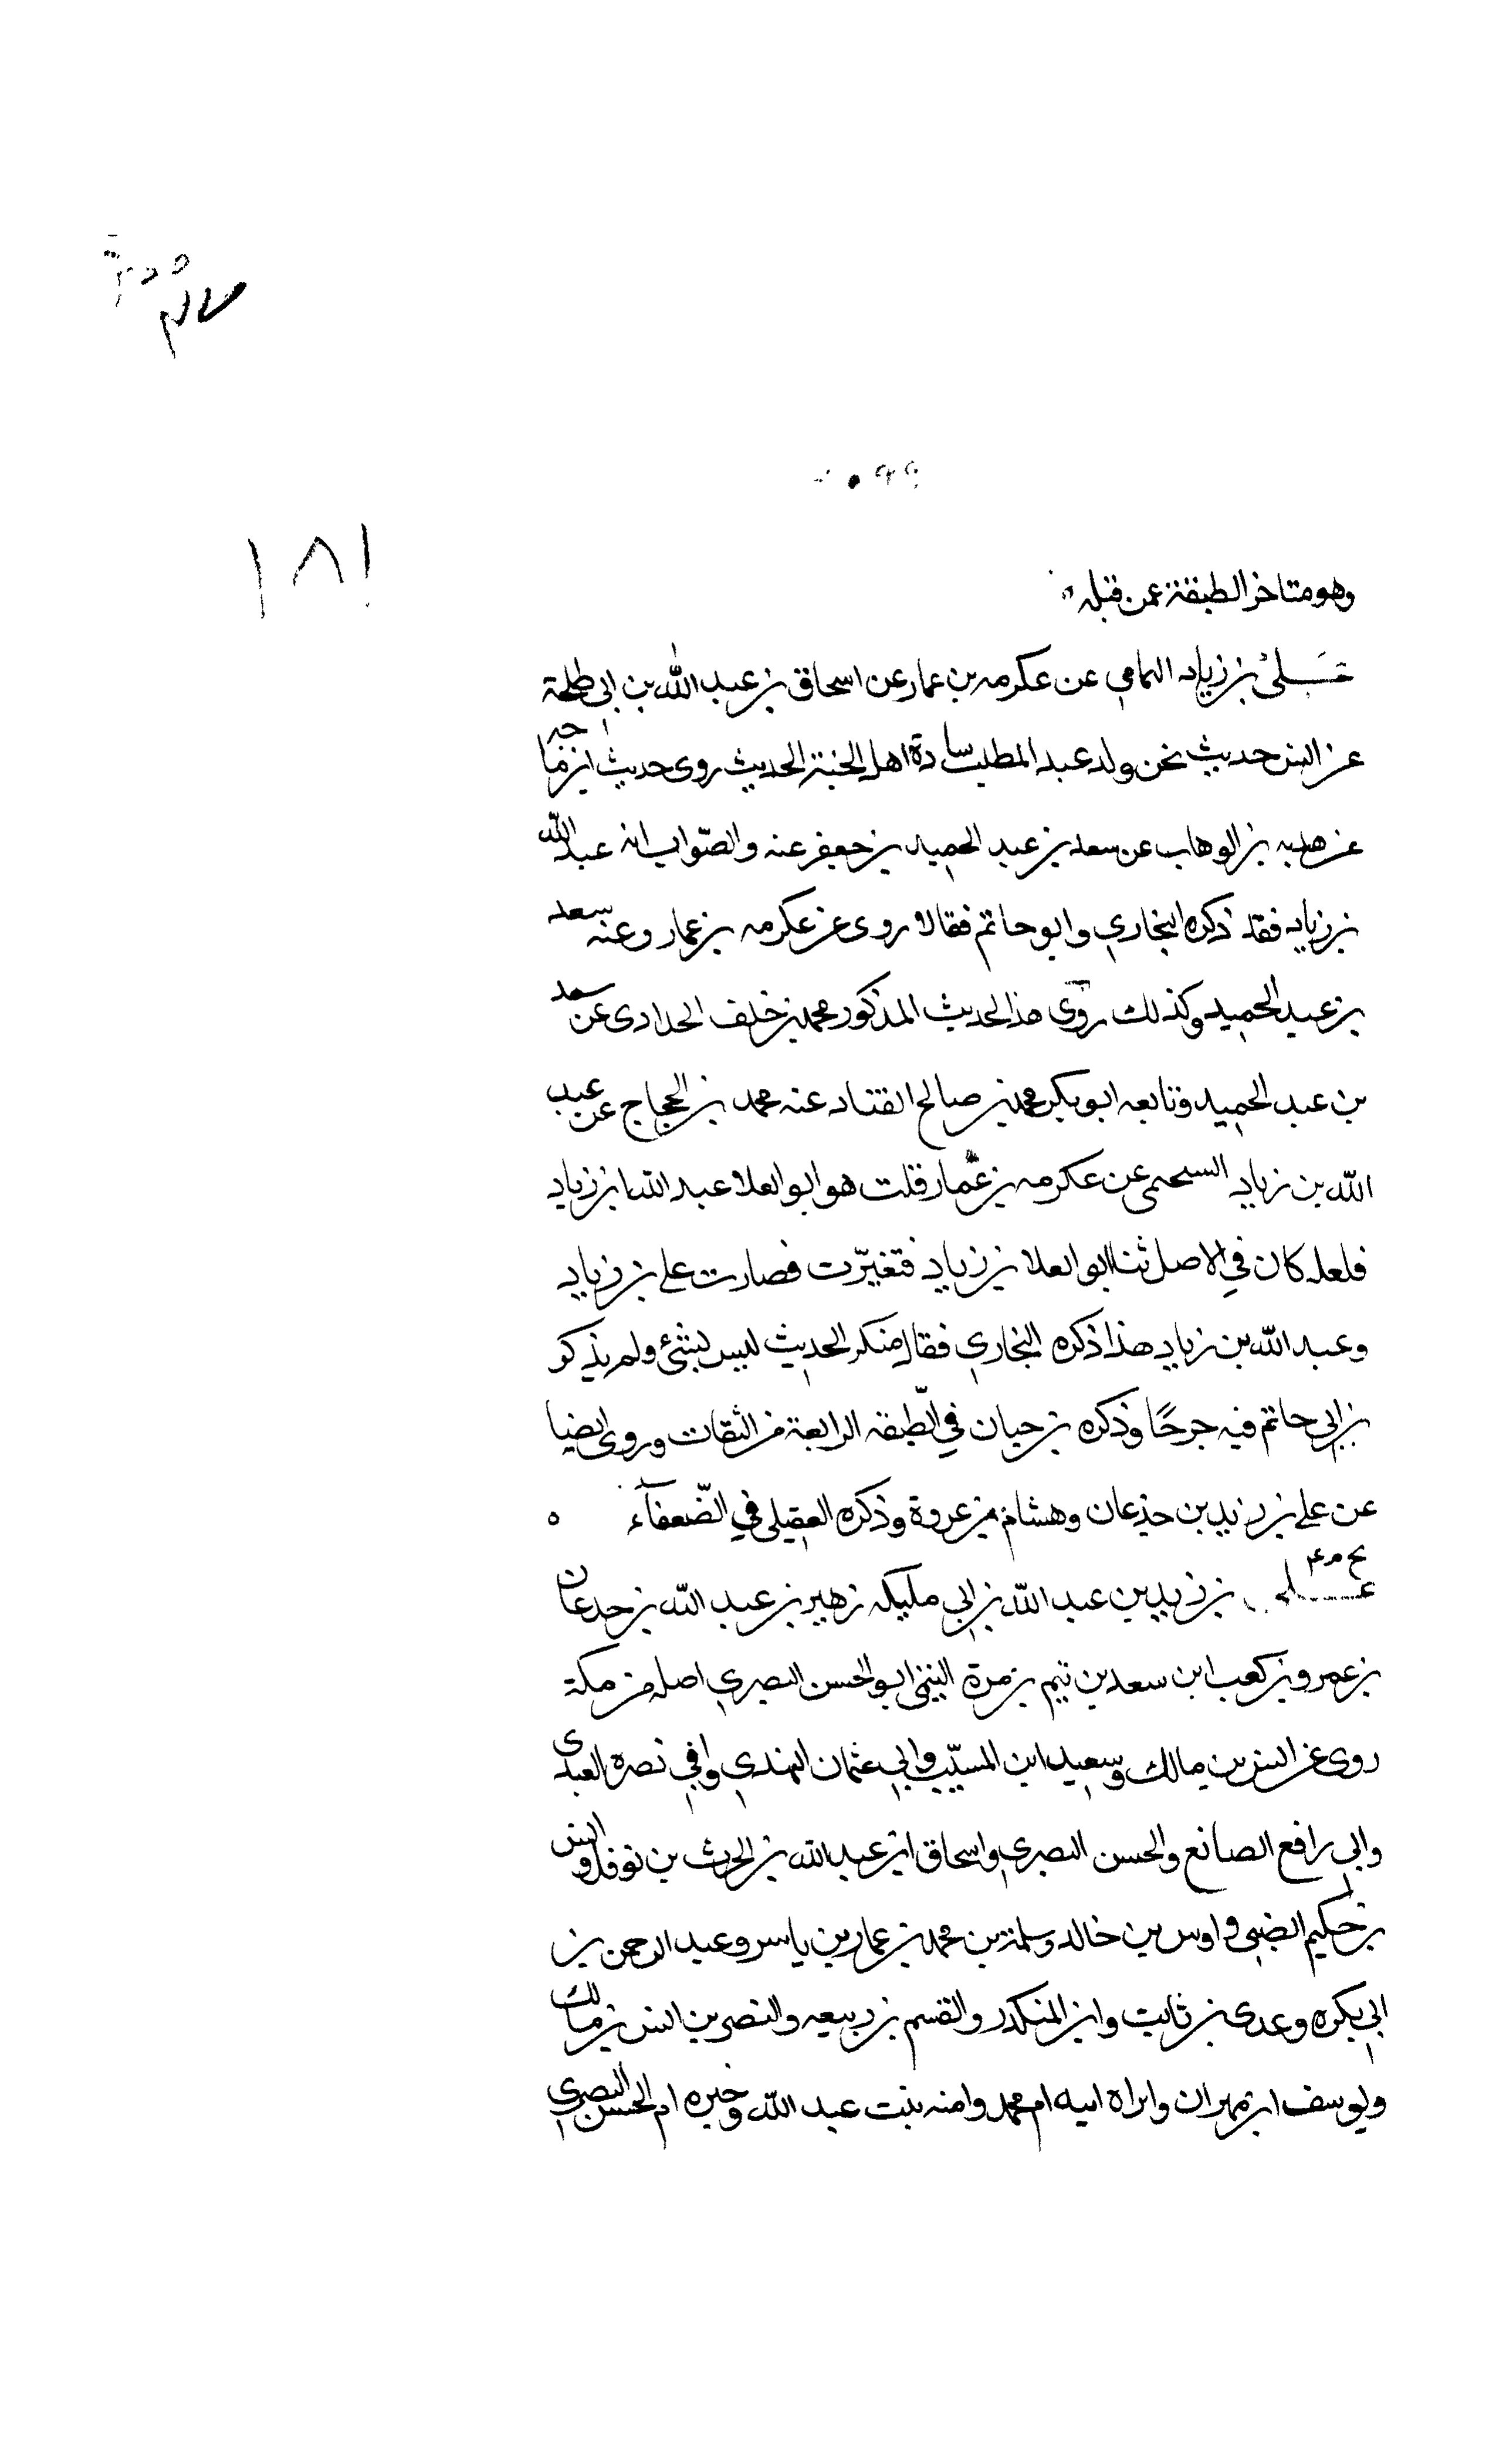 ١٨١
وهو متاخر الطبقة عمن قبله
علي بن زياد اليمامي عن عكرمه بن عمار عن اسحاق بن عبد الله بن ابي طلحة
عن انس حديث نحن ولد عبد المطلب سادة اهل الجنة الحديث روى حديث ابن ماجه
عن هدبه بن الوهاب عن سعد بن عبد الحميد بن جعفر عنه والصّواب انه عبد الله
بن زياد فقد ذكره البخاري وابو حاتم فقالا روى عن عكرمه بن عمار وعنه سعد
بن عبد الحميد وكذلك روى هذا الحديث المذكور محمد بن خلف الحدادى عن سعد
بن عبد الحميد وتابعه ابو بكر محمد بن صالح القناد عنه محمد بن الحجاج عن عبد
الله بن زياد السحيمى عن عكرمه بن عمار قلت هو ابو العلا عبد الله بن زياد
فلعله كان في الاصل ثنا ابو العلا بن زياد فتغيّرت فصارت علي بن زياد
وعبد الله بن زياد هذا ذكره البخاري فقال منكر الحديث ليس بشئ ولم يذكر
بن ابي حاتم فيه جرحًا وذكره بن حبان في الطّبقه الرابعة من الثقات وروى ايضا
عن علي بن زيد بن جذعان وهشام بن عروة وذكره العقيلي في الضّعفآء ٥
بخ م ٤
علي بن زيد بن عبد الله بن ابي مليكه زهير بن عبد الله بن جدعان
بن عمرو بن كعب ابن سعد بن تيم بن مرة التيمى ابو الحسن البصري اصله من مكة
روى عن انس بن مالك وسعيد ابن المسيّب وابي عثمان النهدي وابي نضره العبدى
وابي رافع الصائغ والحسن البصري واسحاق ابن عبد الله بن الحرث بن نوفل وانس
بن حكيم الضبي واوس بن خالد وسلمة بن محمد بن عمار بن ياسر وعبد الرحمن بن
ابي بكره وعدى بن ثابت وابن المنكدر والقسم بن ربيعه والنضر بن انس بن مالك
ويوسف ابن مهران وامراه ابيه ام محمد وامنه بنت عبد الله وخيره ام الحسن البصري